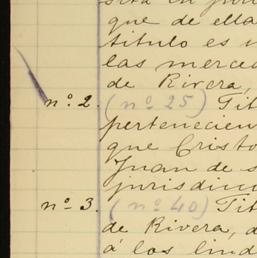 sita en
que de ella
titulo es u
las merced
de Rivera,
nº 2. (nº 25) Tit
pertenecien
que Cristo
Juan de s
jurisdicci
nº 3. (nº 40) Tit
de Rivera, d
á los lind